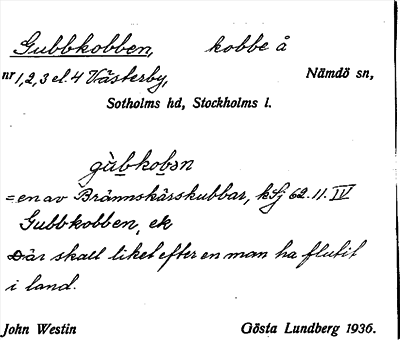 Gubbkobben, kobbe å
nr 1, 2, 3 el. 4 Västerby, Nämdö sn,
Sotholms hd, Stockholms l.
gù̀bkobən
= en av Brännskärskubbar, kfj 62.11. IV
Gubbkobben, ek
Där skall liket efter en man ha flutit
i land.
John Westin Gösta Lundberg 1936.